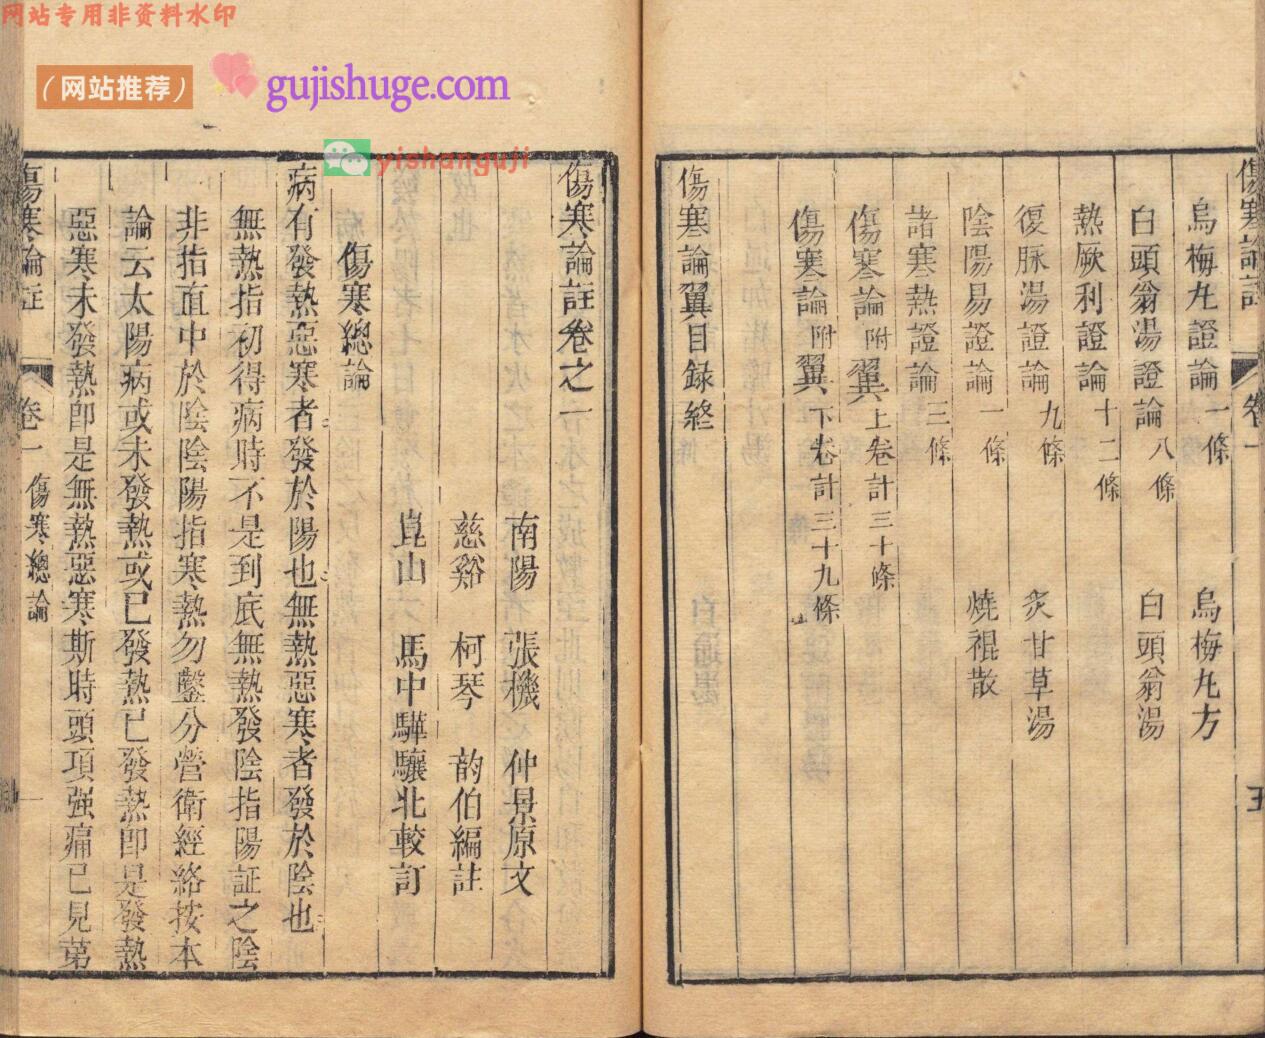 网站专用非资料水印
（网站推荐）
gujishuge.com
yishanguji
傷寒論註
卷一
五
烏梅丸證論一條　烏梅丸方
白頭翁湯證論八條　白頭翁湯
熱厥利證論十二條
復脉湯證論九條　炙甘草湯
陰陽易證論一條　燒裩散
諸寒熱證論三條
傷寒論附翼上卷計三十條
傷寒論附翼下卷計三十九條
傷寒論翼目録終
傷寒論註卷之一
南陽　張機　仲景原文
慈谿　柯琴　韵伯編註
崑山　馬中驊驤北較訂
傷寒總論
病有發熱惡寒者發於陽也無熱惡寒者發於陰也
無熱指初得病時不是到底無熱發陰指陽証之陰
非指直中於陰陰陽指寒熱勿鑿分營衛經絡按本
論云太陽病或未發熱或已發熱已發熱卽是發熱
惡寒未發熱卽是無熱惡寒斯時頭項强痛已見第
傷寒論註
卷一
傷寒總論
一